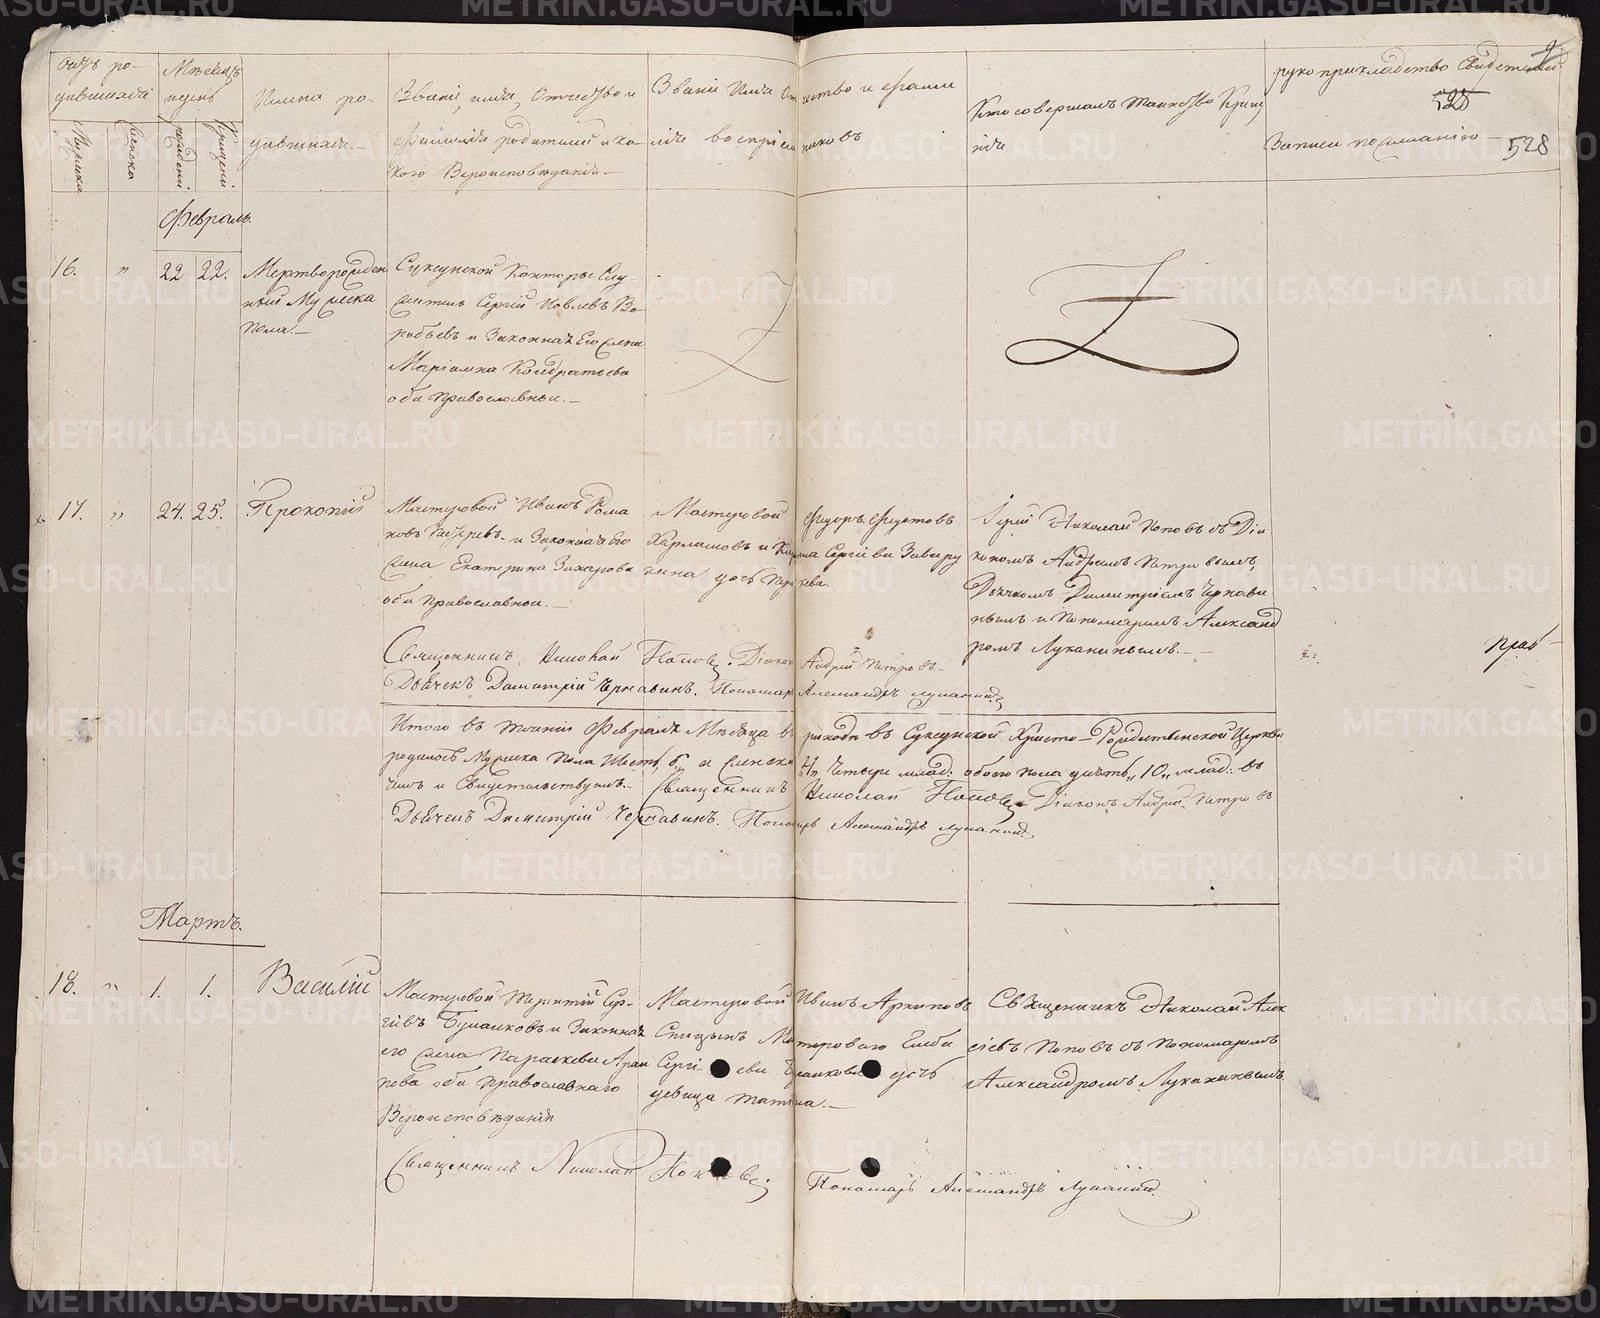 METRIKI.GASO-URAL.RU
Мѣсяцъ
и день
Имена ро-
дившихся.-
Званіе, имя, Отчество и
Фамилія родителей и ка-
кого Вѣроисповѣданія-
Званіе Имя Отчество и Фами
лія воспріемниковъ
Кто совершалъ таинство Крещ
нія
рукоприкладство Свидетелей
Записи по желанію
525
528
Февраль.
16. " 22 22. Мертворожден
ный Мужеска
пола.-
Суксунской Конторы Слу
житель Сергѣй Иовлевъ Во-
робьевъ и Законная Его Жена
Маріамна Кондратьева
оба Православные.-
17. " 24. 25. Прокопій
Мастеровой Иванъ Рома
новъ и Законная Его
Жена Екатерина Захарова
оба Православные.-
Мастеровой Федоръ Федотовъ
Харламовъ и
дочь
Іерей Николай Поповъ съ Діа
кономъ Андреемъ Петровымъ,
Дьячкомъ Димитріемъ Чернави
нымъ и Пономаремъ Александ
ромъ Луканинымъ.-
Священникъ Николай Поповъ. Діаконъ Андрей Петровъ
Дьячекъ Димитрій Чернавинъ. Пономарь Александръ Луканинъ
прав-
Итого въ теченіи Февраля Мѣсяца въ приходѣ въ Суксунской Христо-Рождественской Церкви
родилось Мужеска пола Шесть, 6, а Женска "4" Четыре млад: обоего пола десять "10" млад: въ
чемъ и Свидетельствуемъ.- Священникъ Николай Поповъ Діаконъ Андрей Петровъ
Дьячекъ Димитрій Чернавинъ. Пономарь Александръ Луканинъ
Мартъ.
18. " 1. 1. Василій
Мастеровой Терентій Сер-
гѣевъ и Законная
его Жена Параскева
оба Православнаго
Вѣроисповѣданія
Мастеровой Иванъ Архиповъ
Спицынъ Мастероваго Глѣба
Сергѣева дочь
девица Татіяна.-
Священникъ Николай Алек
сіевъ Поповъ съ Пономаремъ
Александромъ Луканинымъ.
Священникъ Николай Поповъ.
Пономарь Александръ Луканинъ.